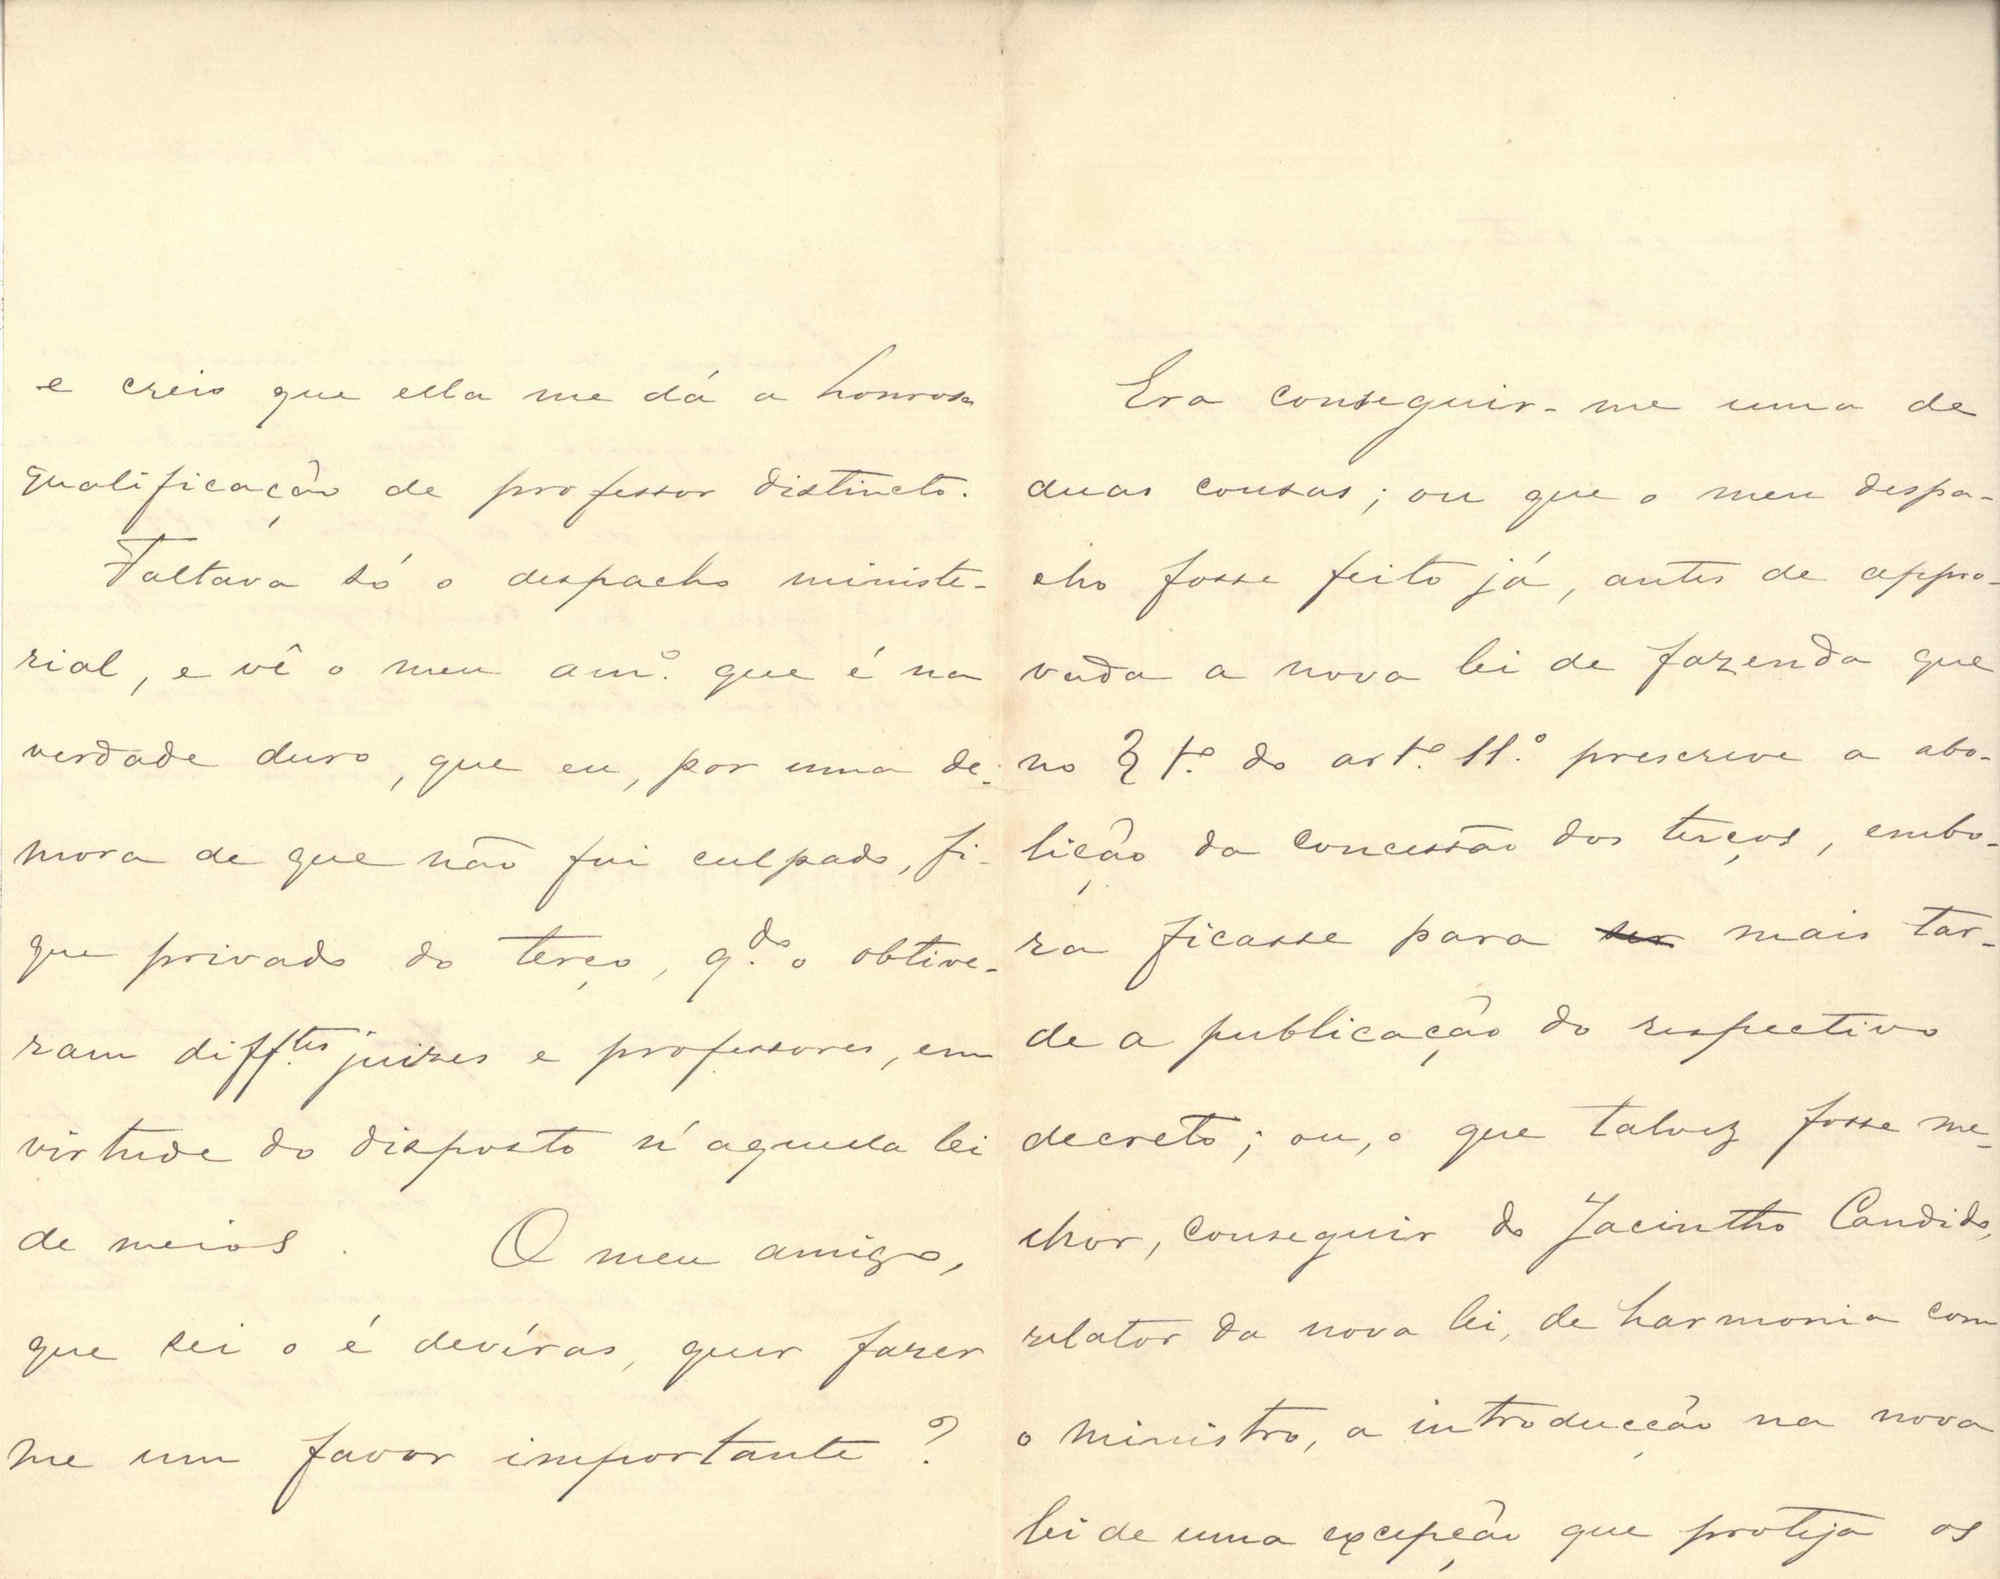 e creio que ella me dá a honrosa
qualificação de professor distincto.
Faltava só o despacho ministe-
rial, e vê o meu amº. que é na
verdade duro, que eu, por uma de-
mora de que não fui culpado, fi-
que privado do terço, q.do o obtive-
ram diff.tes juizes e professores, em
virtude do disposto n'aquella lei
de meios. O meu amigo,
que sei o é devéras, quer fazer
me um favor importante?
Era conseguir-me uma de
duas cousas; ou que o meu despa-
cho fosse feito já, antes de appro-
vada a nova lei de fazenda que
no § 1.º do artº. 11.º prescreve a abo-
lição da concessão dos terços, embo-
ra ficasse para ser mais tar-
de a publicação do respectivo
decreto; ou, o que talvez fosse me-
lhor, conseguir do Jacintho Candido,
relator da nova lei, de harmonia com
o ministro, a introducção na nova
lei de uma excepção que proteja os